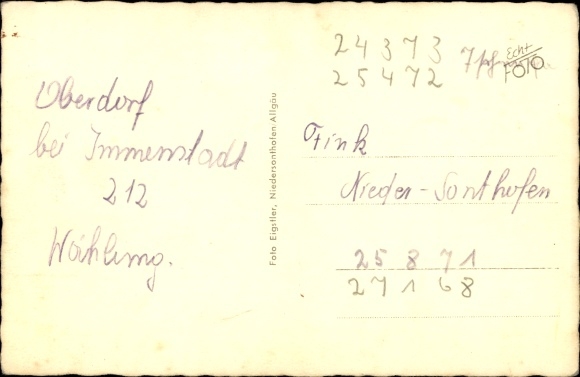 Oberdorf
bei Immenstadt
212
Wählung.
Foto Eigstler, Niedersonthofen-Allgäu
24373
25472
Echt
FOTO
Fink
Nieder-Sonthofen
25871
27168